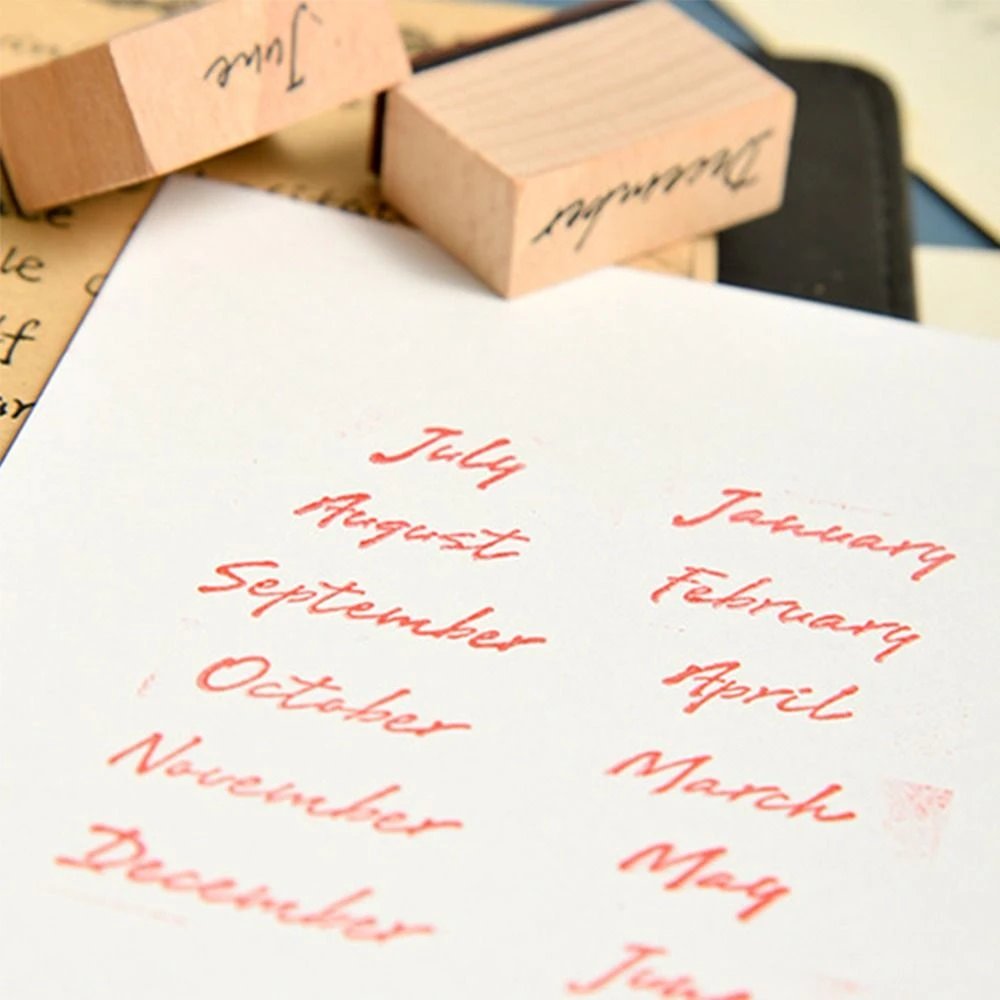 June
December
July
August
September
October
November
December
January
February
April
March
May
June